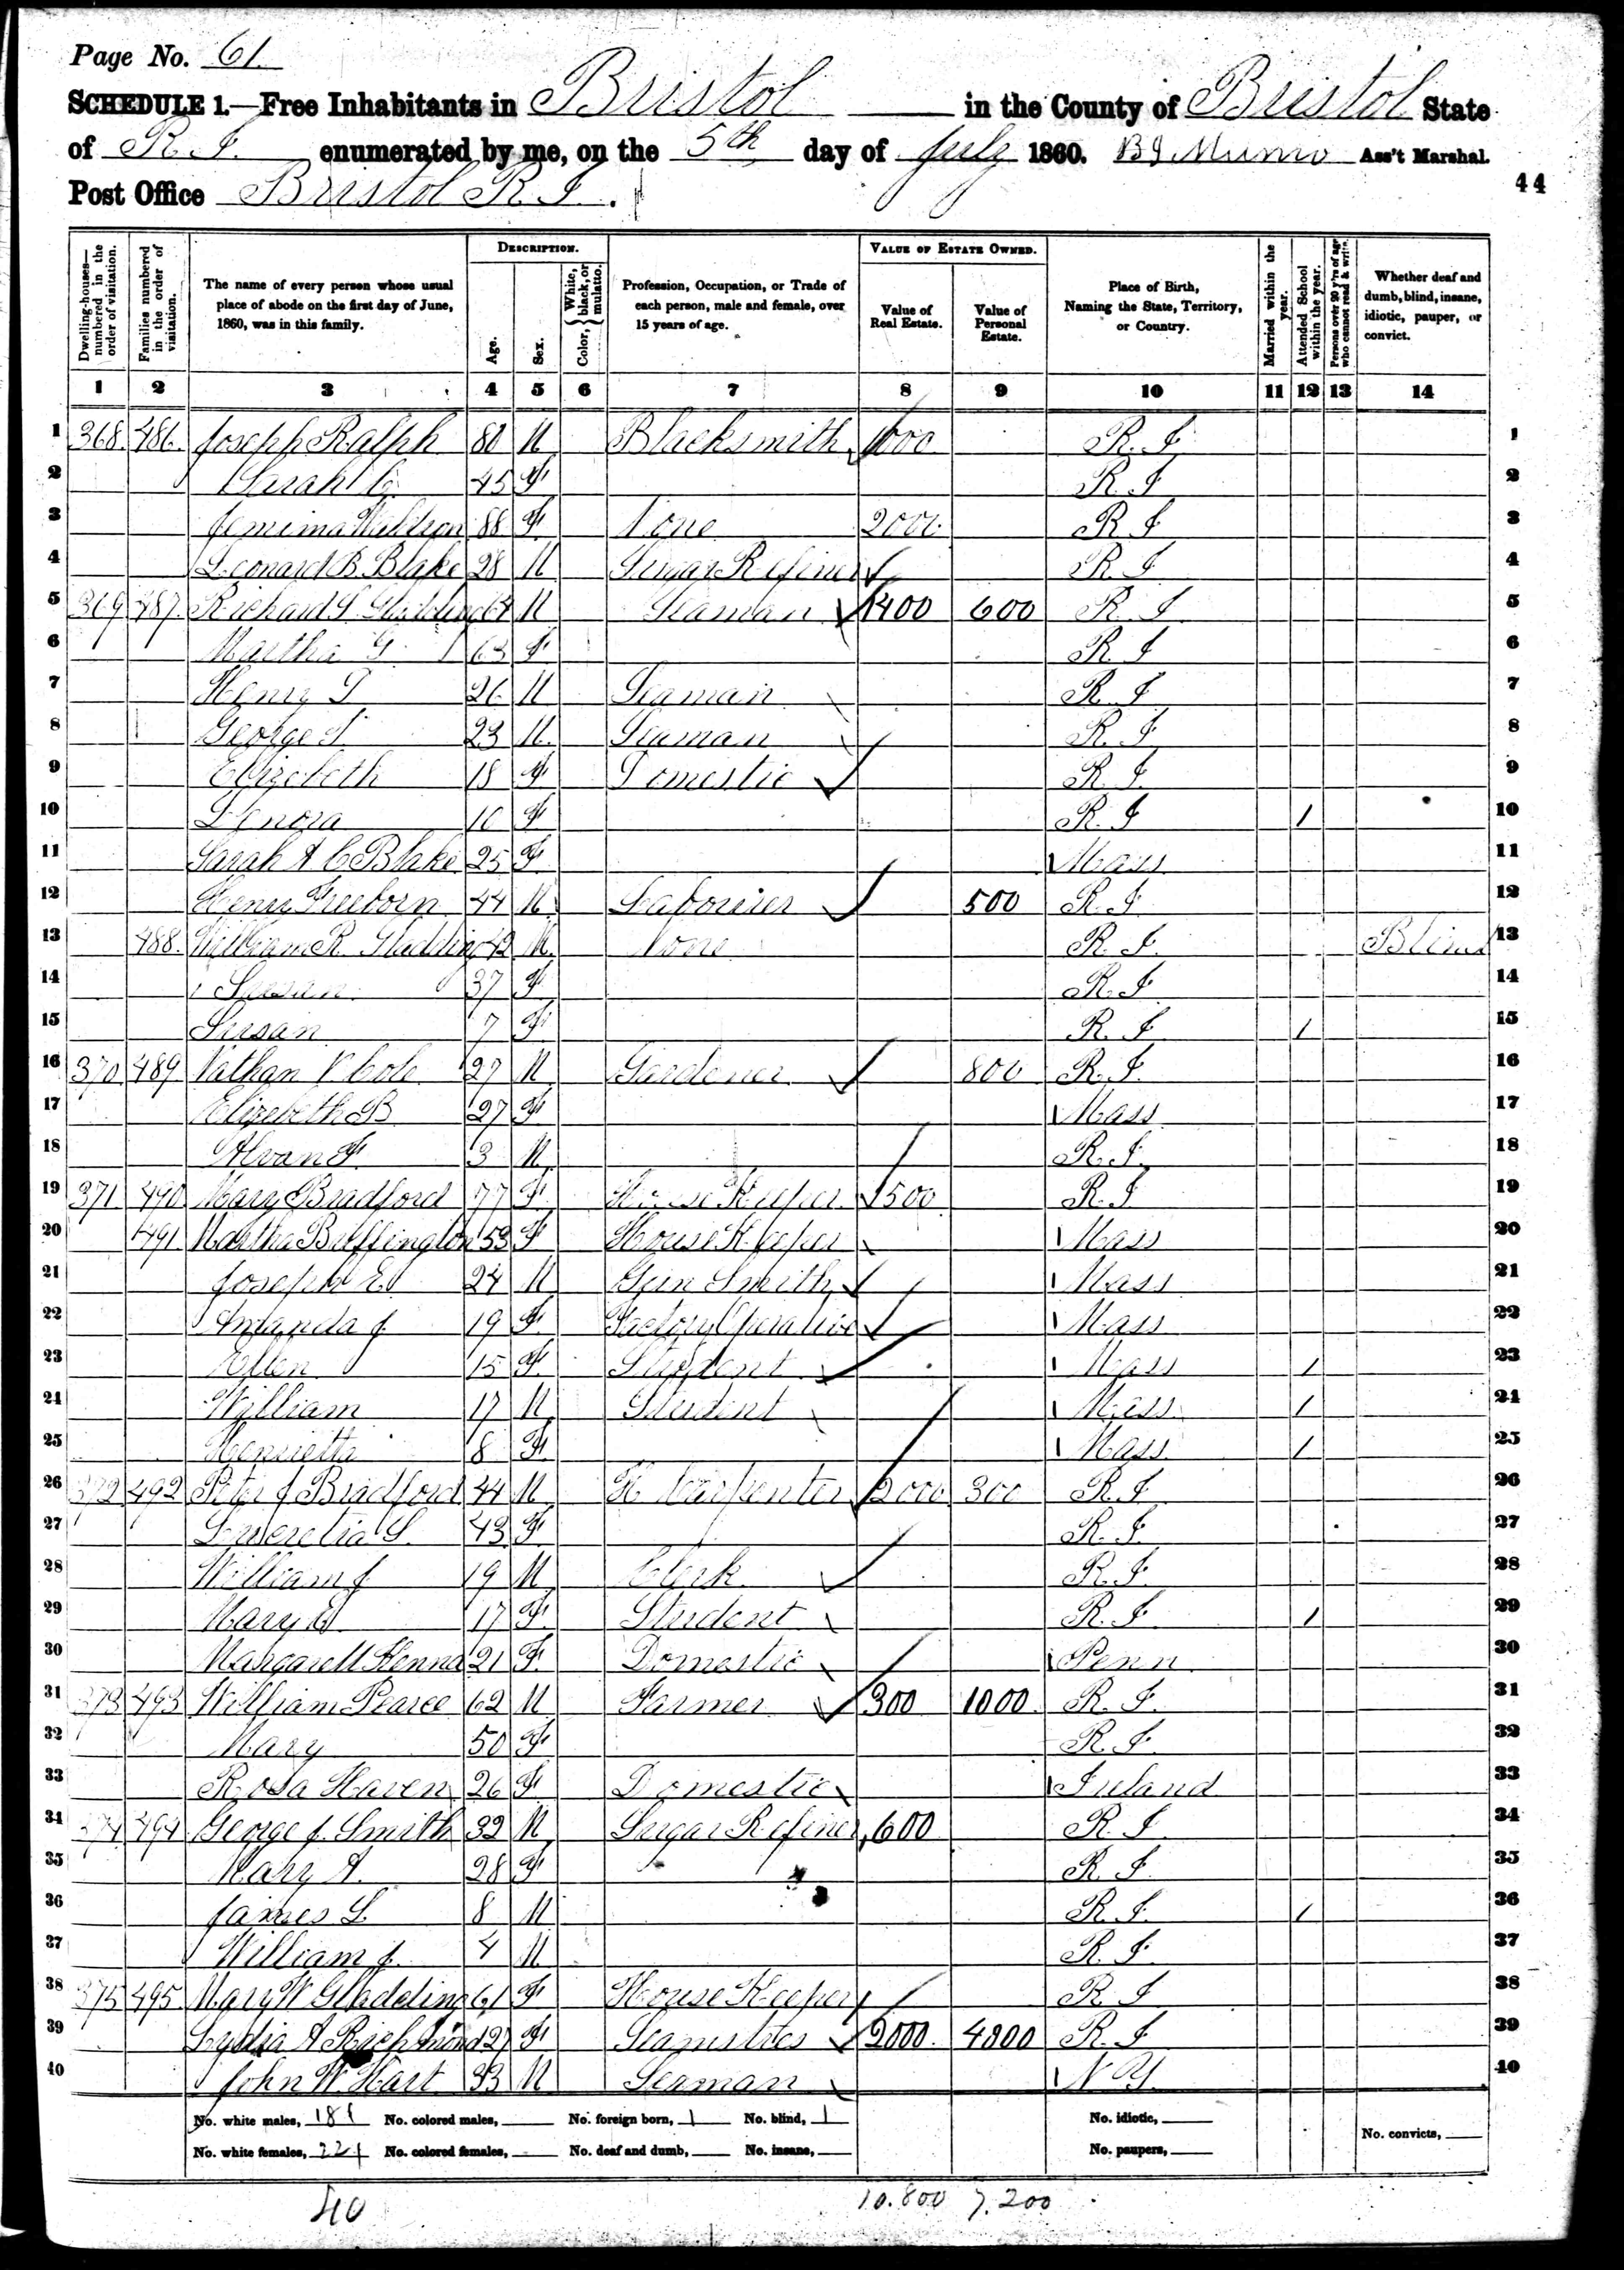 Page No. 61.
SCHEDULE 1.—Free Inhabitants in Bristol in the County of Bristol State
of R.I. enumerated by me, on the 5th day of July 1860. Ass't Marshal.
44
Post Office Bristol R.I.
Dwelling-houses—numbered in the order of visitation.
Families numbered in the order of visitation.
The name of every person whose usual place of abode on the first day of June, 1860, was in this family.
DESCRIPTION.
Age.
Sex.
Color, White, black, or mulatto.
Profession, Occupation, or Trade of each person, male and female, over 15 years of age.
VALUE OF ESTATE OWNED.
Value of Real Estate.
Value of Personal Estate.
Place of Birth, Naming the State, Territory, or Country.
Married within the year.
Attended School within the year.
Persons over 20 y'rs of age who cannot read & write.
Whether deaf and dumb, blind, insane, idiotic, pauper, or convict.
1 2 3 4 5 6 7 8 9 10 11 12 13 14
1 368. 486. Joseph Ralph 80 M Blacksmith R.I. 1
2 Sarah 45 F R.I 2
3 Jemima Waldron 88 F None 2000 R I 3
4 Leonard B. Blake 28 M Sugar Refiner R.I 4
5 369 487. Richard Gladding M Seaman 1400 600 R.I. 5
6 Martha G 63 F R.I 6
7 Henry 26 M Seaman R.I 7
8 George 23 M. Seaman R.I 8
9 Elizabeth 18 F Domestic R.I. 9
10 Lenora 10 F R.I 1 10
11 Sarah A C Blake 25 F Mass 11
12 Henry Freeborn 44 M Labourier 500 R.I 12
13 488. William R. Gladding 42 M. None R.I. Blind 13
14 Susan 37 F R.I 14
15 Susan 7 F R.I 1 15
16 370 489 Nathan Cole 27 M Gardener 800 R.I. 16
17 Elizabeth B 27 F Mass 17
18 Alvan F. 3 M R.I. 18
19 371. 490 Mary Bradford 77 F House Keeper 500 R.I 19
20 491. Martha Buffington 53 F House Keeper Mass 20
21 Joseph E 24 M Gun Smith Mass 21
22 Amanda J. 19 F Factory Operative Mass 22
23 Ellen 15 F Student Mass 1 23
24 William 17 M Student Mass 1 24
25 Henrietta 8 F Mass 1 25
26 372 492 Peter J Bradford 44 M H Carpenter 2000 300 R.I 26
27 Lucretia S. 43 F R.I. 27
28 William J 19 M Clerk R.I. 28
29 Mary E. 17 F Student R.I. 1 29
30 21 F. Domestic Penn 30
31 373 493 William Pearce 62 M Farmer 300 1000 R.I. 31
32 Mary 50 F R.I. 32
33 Rosa Haven 26 F Domestic Ireland 33
34 374 494 George J. Smith 32 M Sugar Refiner 600 R.I. 34
35 Mary A. 28 F R.I. 35
36 James L 8 M R.I. 1 36
37 William J. 4 M R.I. 37
38 375 495 Mary W Gladding 61 F House Keeper R I 38
39 Lydia A Richmond 27 F Seamstres 2000. 4000 R.I 39
40 John W. Hart 33 M Seaman N Y. 40
No. white males, 18 No. colored males, No. foreign born, 1 No. blind, 1 No. idiotic,
No. white females, 22 No. colored females, No. deaf and dumb, No. insane, No. paupers, No. convicts,
40 10.800 7.200